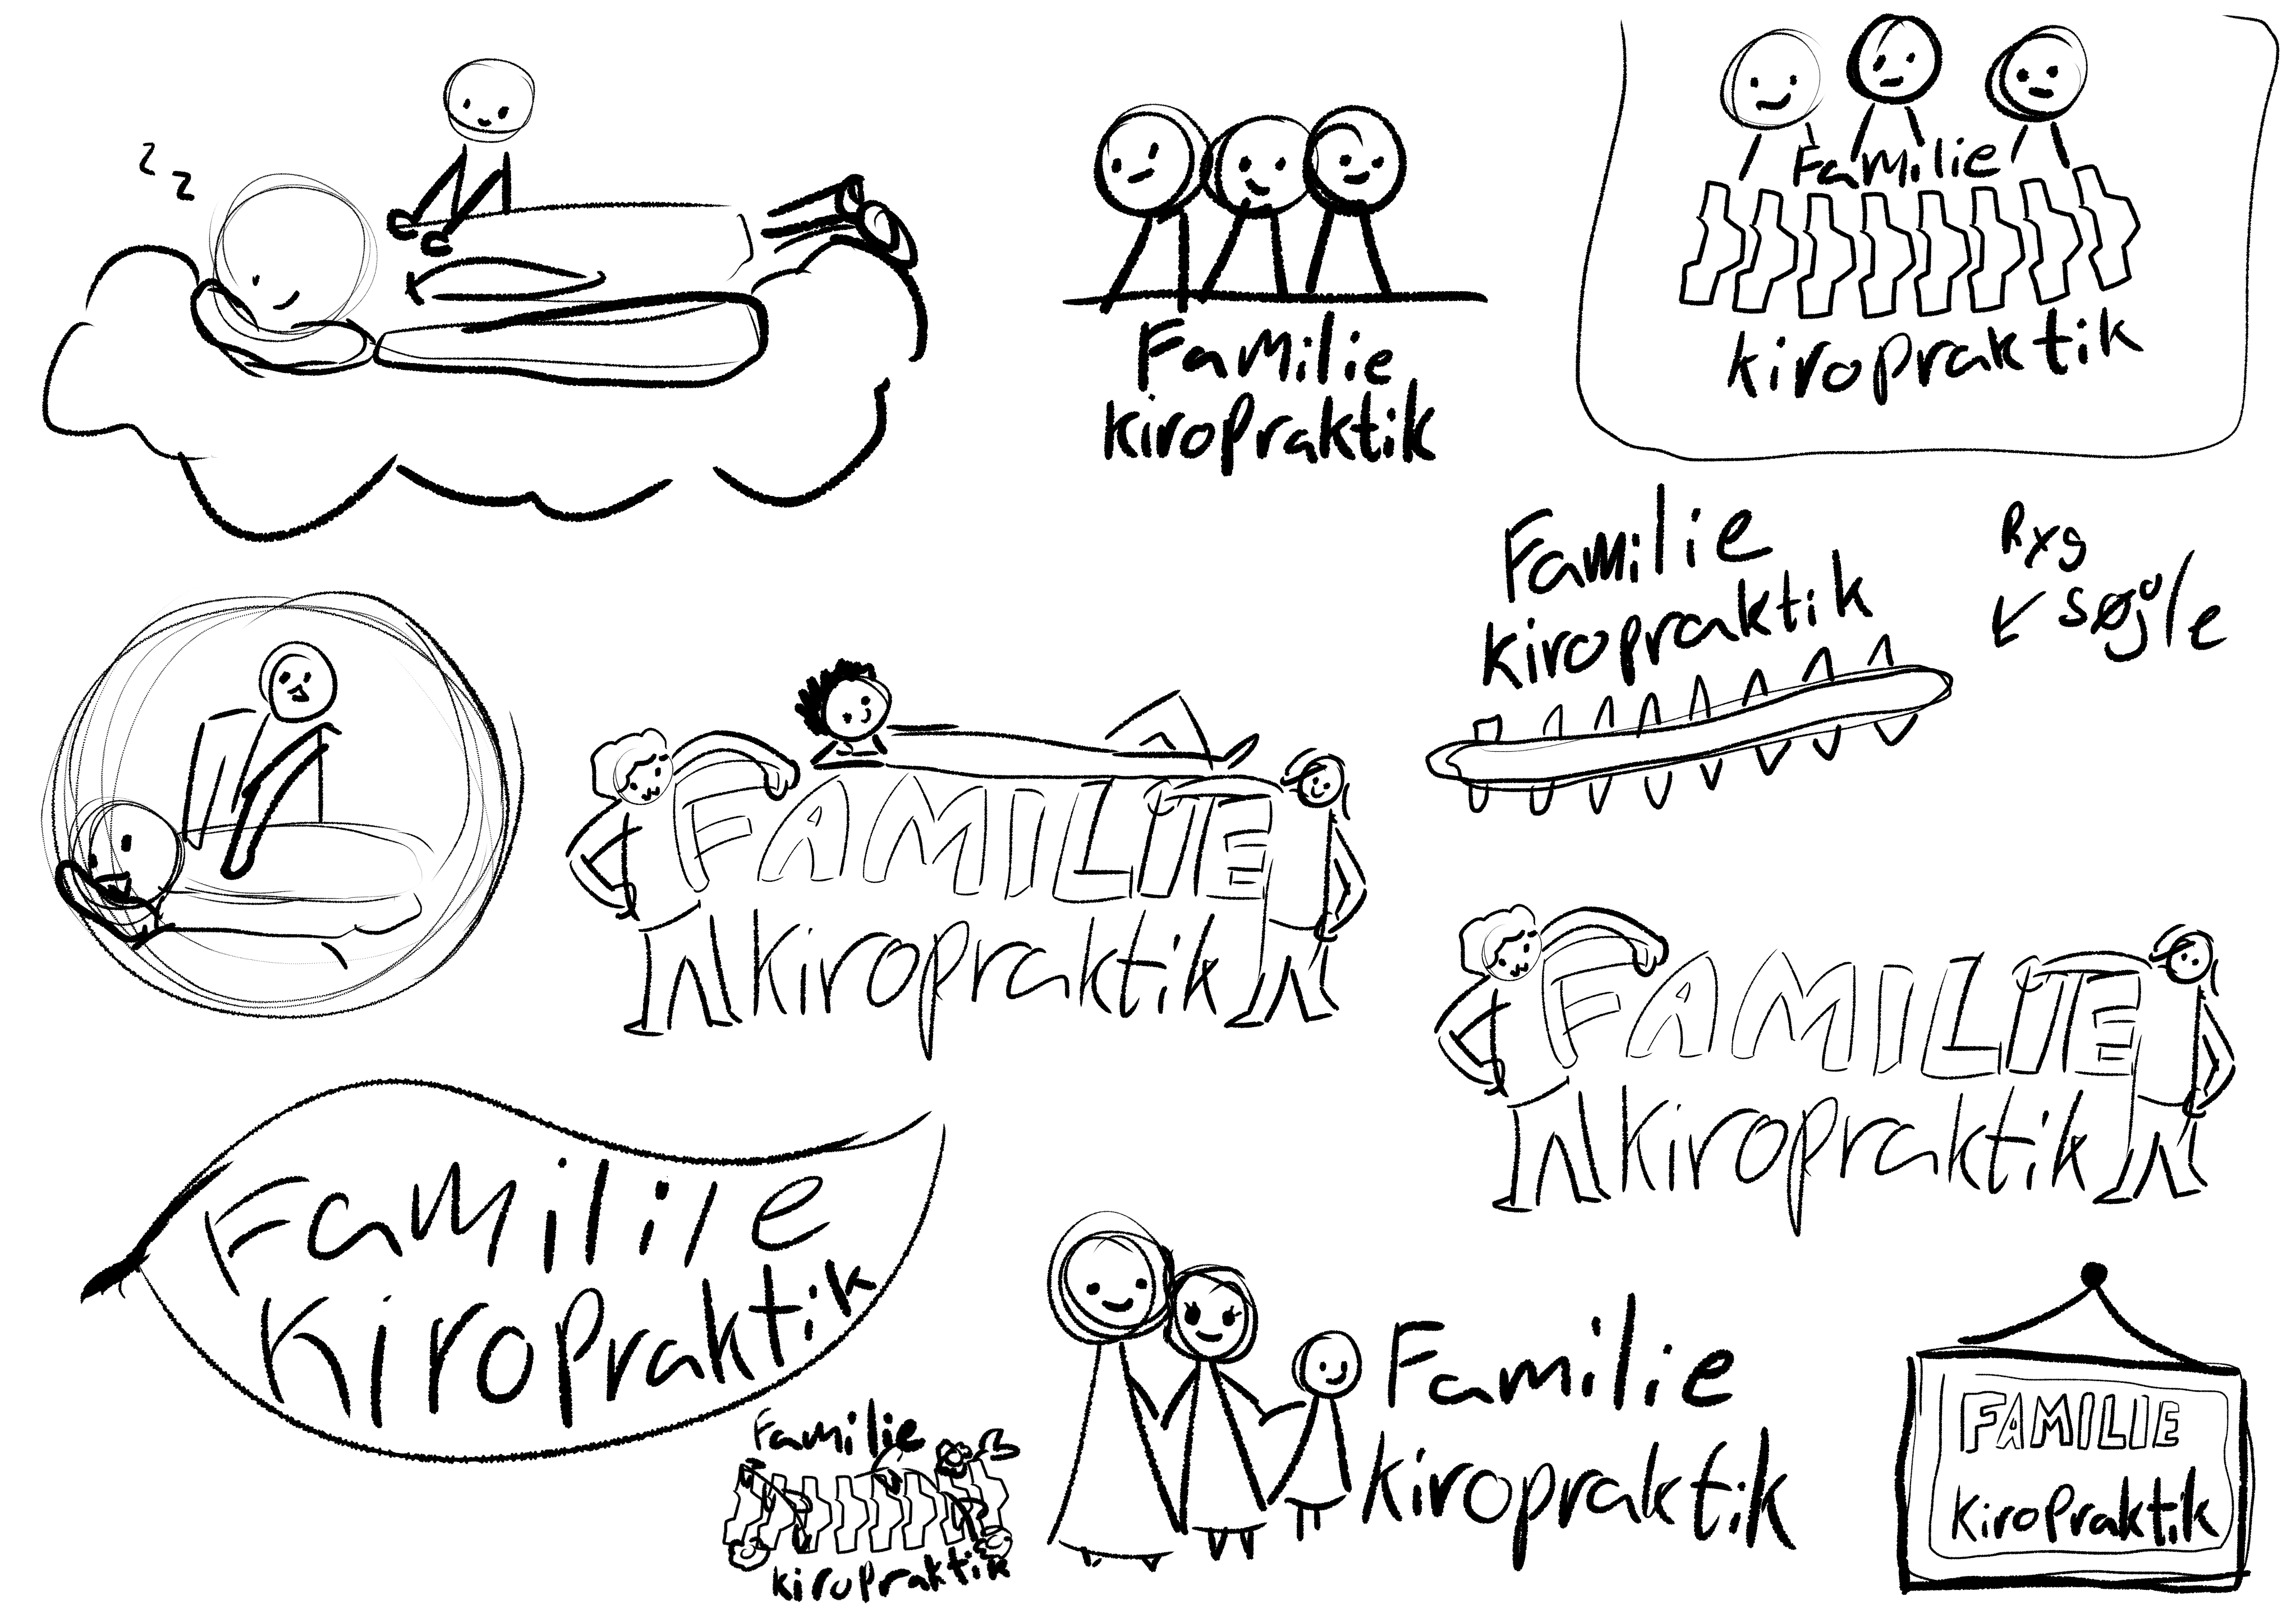 z
z
Familie
kiropraktik
Familie
kiropraktik
Familie
kiropraktik
Ryg
søjle
FAMILIE
kiropraktik
FAMILIE
kiropraktik
Familile
Kiropraktik
Familie
kiropraktik
Familie
kiropraktik
FAMILIE
Kiropraktik